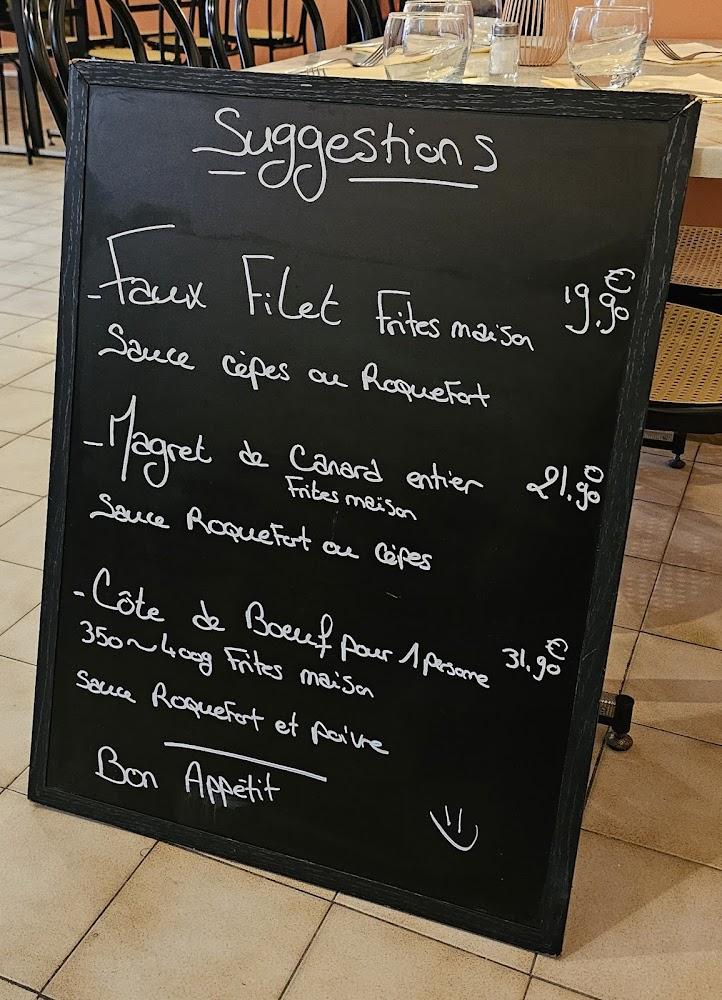 Suggestions
- Faux Filet Frites maison 19,90 €
Sauce cèpes ou Roquefort
- Magret de Canard entier 21,90
Frites maison
Sauce Roquefort ou cèpes
- Côte de Boeuf pour 1 personne 31,90 €
350~400g Frites maison
Sauce Roquefort et poivre
Bon Appétit